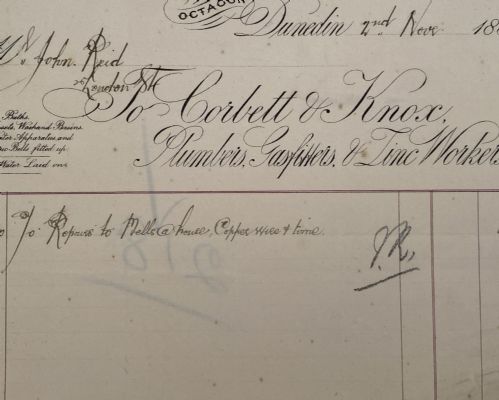 OCTAGON
Dunedin 2nd Nove 188
Mr John Reid
London St
To Corbett & Knox,
Plumbers, Gasfitters, & Zinc Worker
Baths
Washand Basins
Apparatus and
Bells fitted up
Water Laid on
To Repairs to Bells @ house, Copper wire & time
J.R.